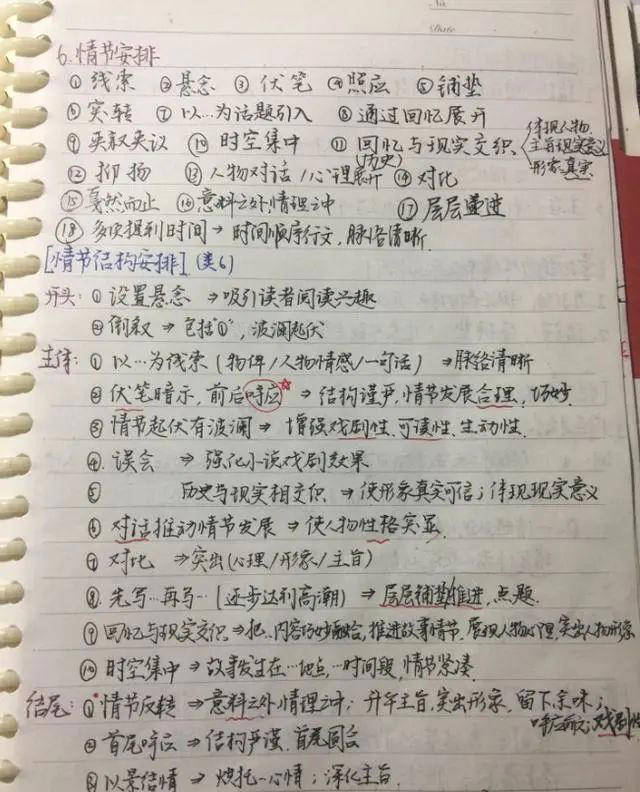 6.情节安排
①线索 ②悬念 ③伏笔 ④照应 ⑤铺垫
⑥突转 ⑦以…为话题引入 ⑧通过回忆展开
⑨夹叙夹议 ⑩时空集中 ⑪回忆与现实交织 体现人物
(历史) 主旨现实意义
形象真实
⑫抑扬 ⑬人物对话/心理展开 ⑭对比
⑮戛然而止 ⑯意料之外,情理之中 ⑰层层递进
⑱多次提到时间→时间顺序行文,脉络清晰
[情节结构安排](类6)
开头:①设置悬念⇒吸引读者阅读兴趣
②倒叙⇒包括"①",波澜起伏
主体:①以…为线索(物件/人物情感/一句话)⇒脉络清晰
②伏笔暗示,前后呼应☆⇒结构谨严,情节发展合理、巧妙
③情节起伏有波澜⇒增强戏剧性、可读性、生动性
④误会⇒强化小说戏剧效果
⑤历史与现实相交织⇒使形象真实可信;体现现实意义
⑥对话推动情节发展⇒使人物性格突显
⑦对比⇒突出(心理/形象/主旨)
⑧先写…再写…(逐步达到高潮)⇒层层铺垫推进,点题
⑨回忆与现实交织⇒把…内容巧妙融合,推进故事情节,展现人物心理,突出人物形象
⑩时空集中⇒故事发生在…地点,…时间段,情节紧凑
结尾:①情节反转⇒意料之外,情理之中;升华主旨,突出形象,留下余味;
呼应前文;戏剧性
②首尾呼应⇒结构严谨,首尾圆合
③以景结情⇒烘托…心情;深化主旨